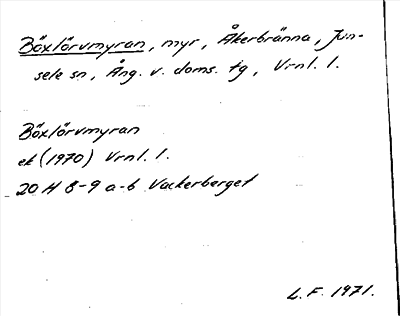 Böxlörvmyran, myr, Åkerbränna, Jun-
sele sn, Ång. v. doms. tg, Vrnl. l.
Böxlörvmyran
ek (1970) Vrnl. l.
20 H 8-9 a-b Vackerberget
L.F. 1971.